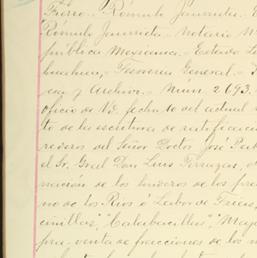 Fierro. - Rómulo Jaurrieta. -
Rómulo Jaurrieta, Notario
pública Mexicana. - Estado
huahua. - Tesorería General. -
y Archivo. - Núm. 2193. -
oficio de Vd. fecha 10 del actual
to de la escritura de ratificación
rederos del Señor Doctor José
el Sr. Gral Don Luis Terrazas,
nación de los linderos de los
no de los Rios o Labor de Frias,
"Calabacillas,"
pra-venta de fracciones de los